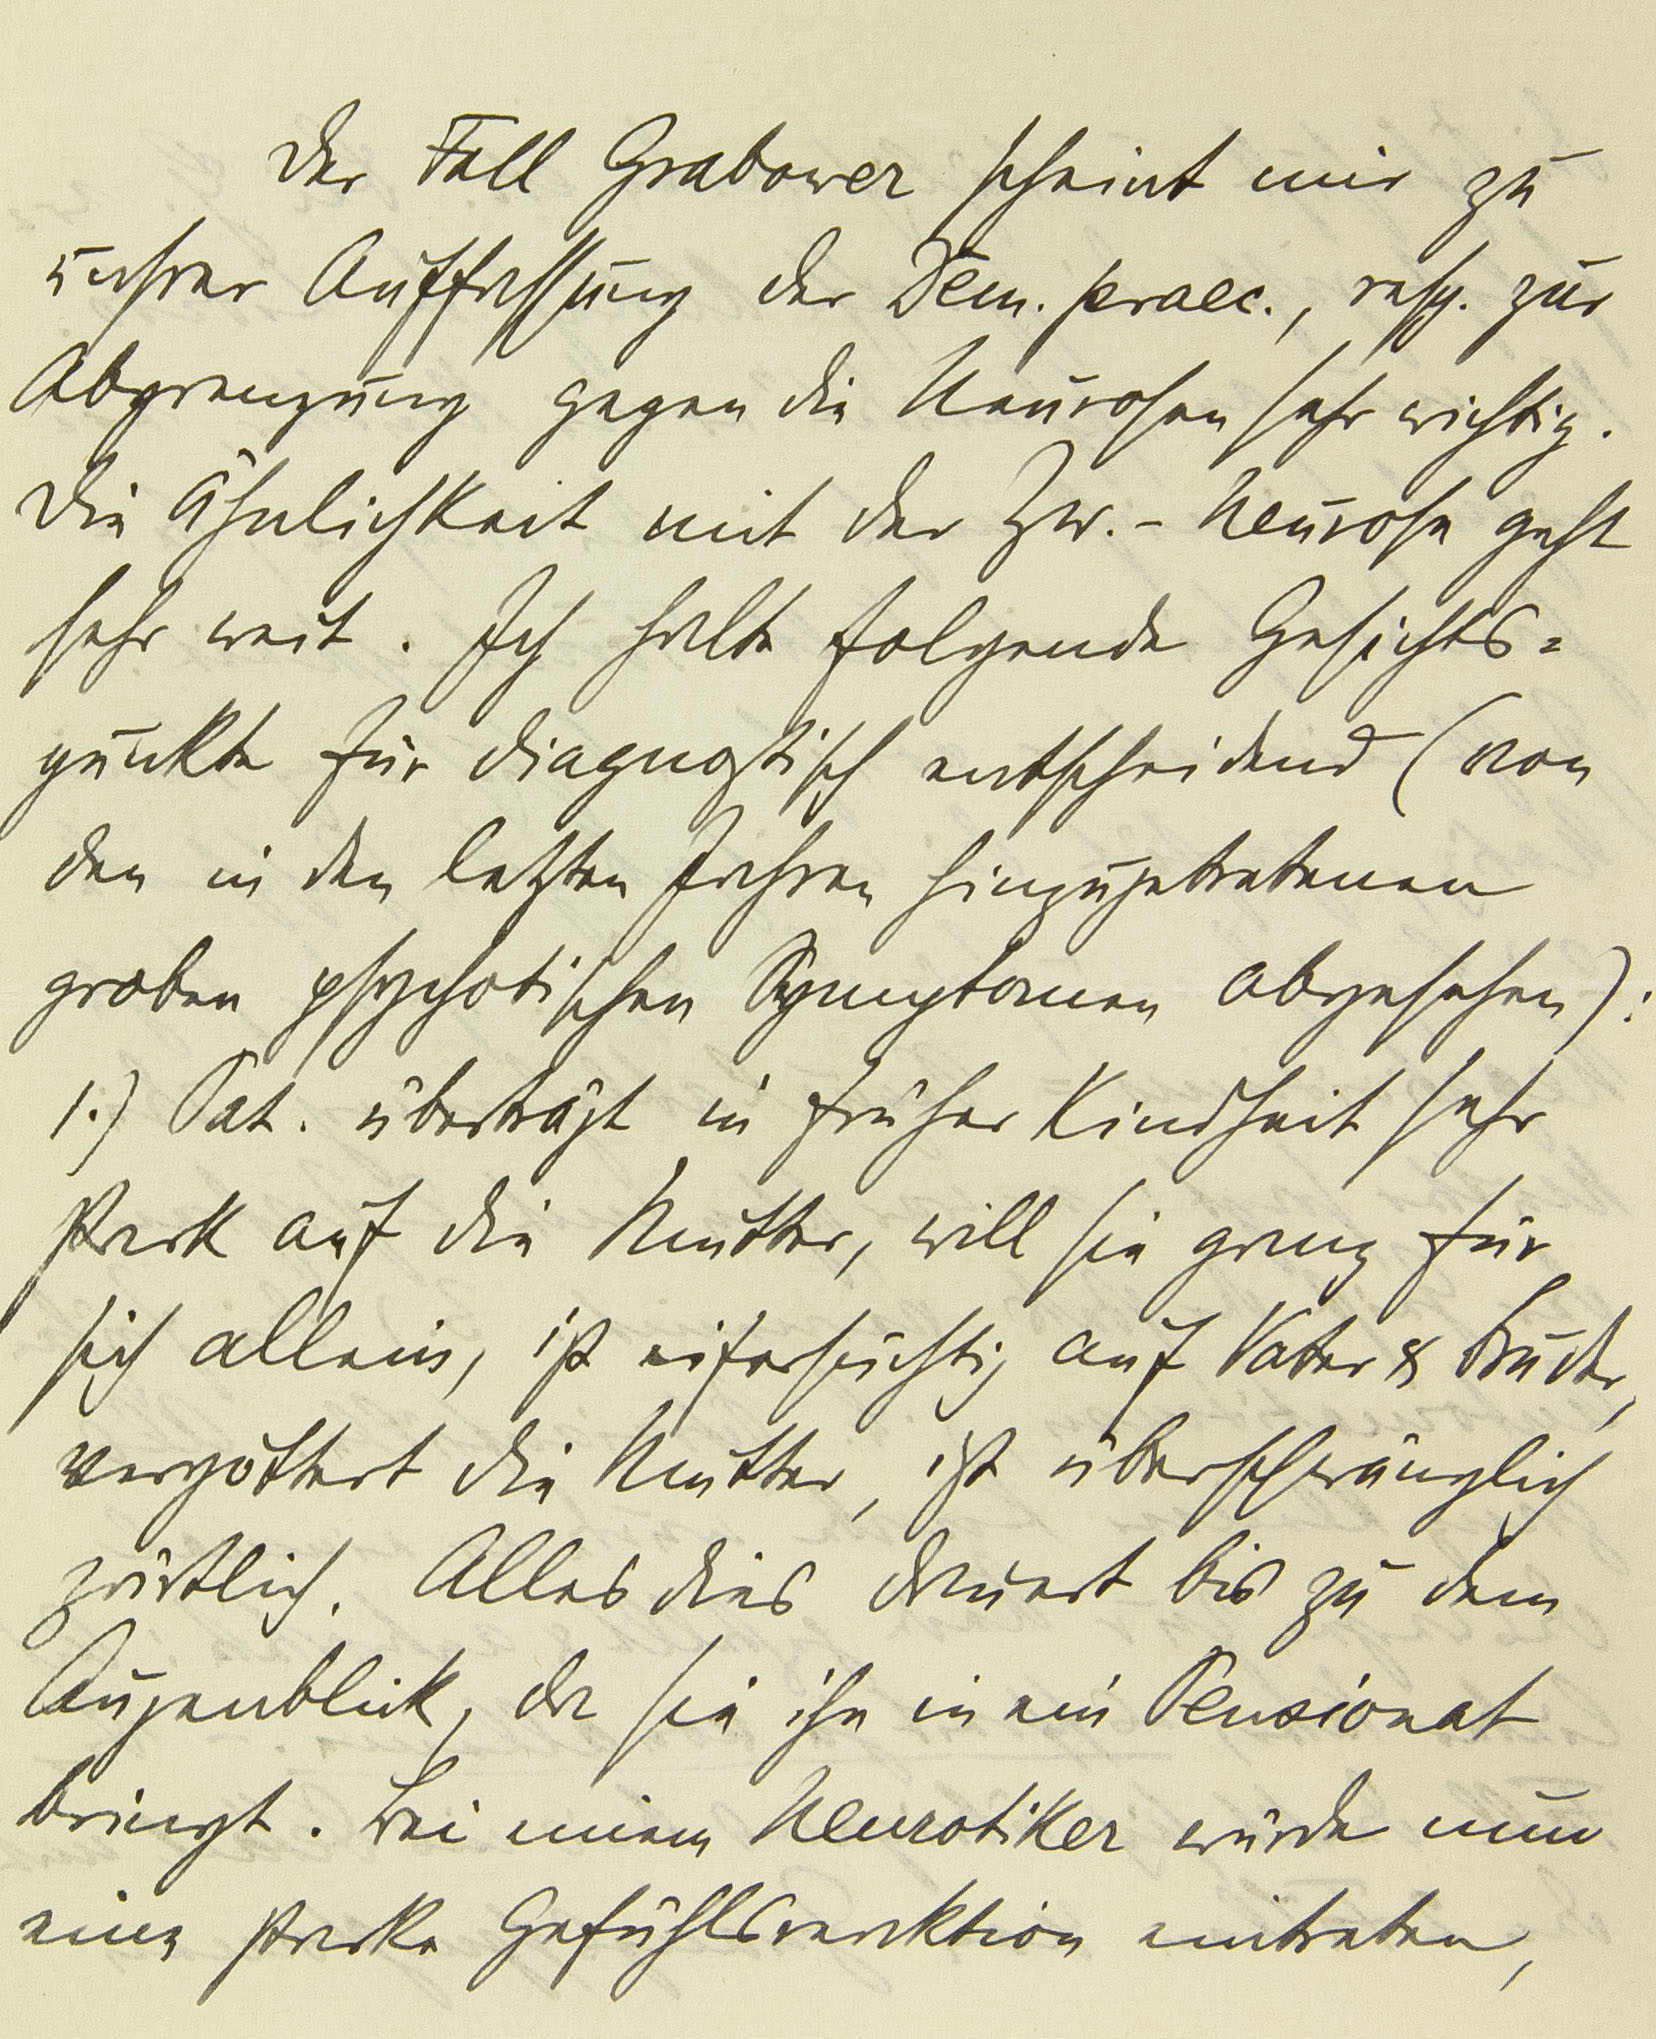 Der Fall Grabower scheint mir zu
unsrer Auffassung der Dem. praec., resp. zur
Abgrenzung gegen die Neurosen sehr wichtig.
Die Ähnlichkeit mit der Zw.-Neurose geht
sehr weit. Ich halte folgende Gesichts=
punkte für diagnostisch entscheidend (von
den in den letzten Jahren hinzugetretenen
groben psychotischen Symptomen abgesehen):
1.) Pat. überträgt in früher Kindheit sehr
stark auf die Mutter, will sie ganz für
sich allein, ist eifersüchtig auf Vater & Bruder,
vergöttert die Mutter, ist überschwänglich
zärtlich. Alles dies dauert bis zu dem
Augenblick, da sie ihn in ein Pensionat
bringt. Bei einem Neurotiker würde nun
eine starke Gefühlsreaktion eintreten,